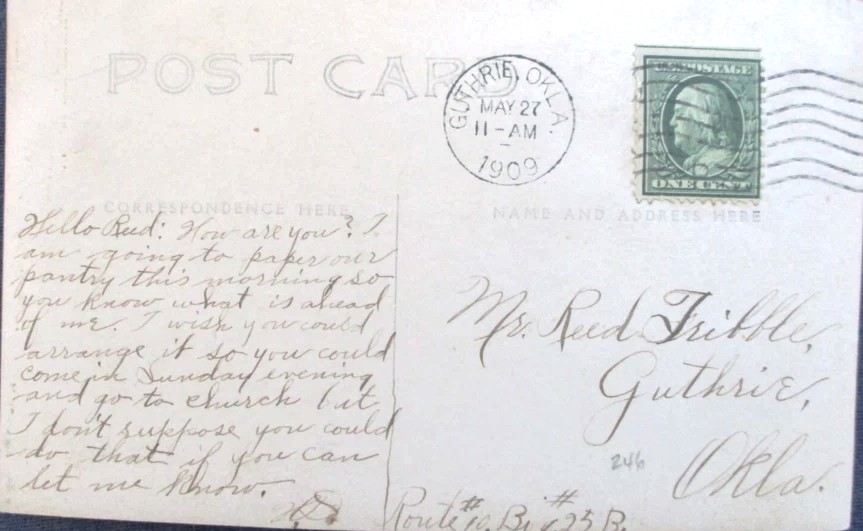 POST CARD
GUTHRIE, OKLA.
MAY 27
11-AM
1909
U.S. POSTAGE
ONE CENT
CORRESPONDENCE HERE
NAME AND ADDRESS HERE
Hello Reed: How are you? I
am going to paper our
pantry this morning so
you know what is ahead
of me. I wish you could
arrange it so you could
come in Sunday evening
and go to church but
I don't suppose you could
do that if you can
let me know.
Mr. Reed Tribble,
Guthrie,
Okla.
246
Route #
# 25 B.